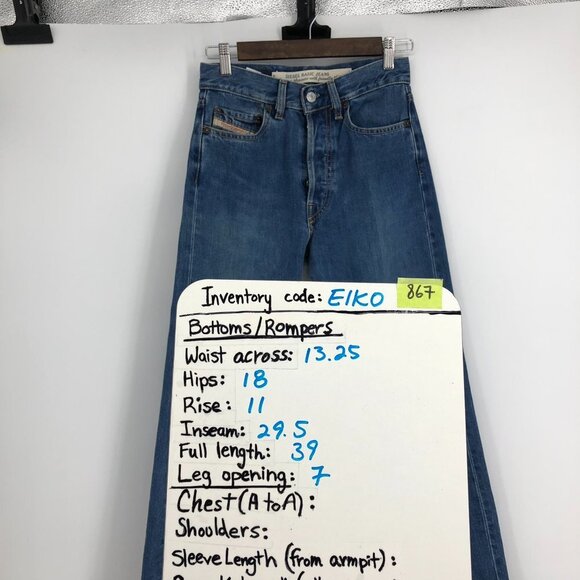 DIESEL BASIC JEANS
Inventory code: EIKO 867
Bottoms/Rompers
Waist across: 13.25
Hips: 18
Rise: 11
Inseam: 29.5
Full length: 39
Leg opening: 7
Chest (A to A):
Shoulders:
Sleeve Length (from armpit):